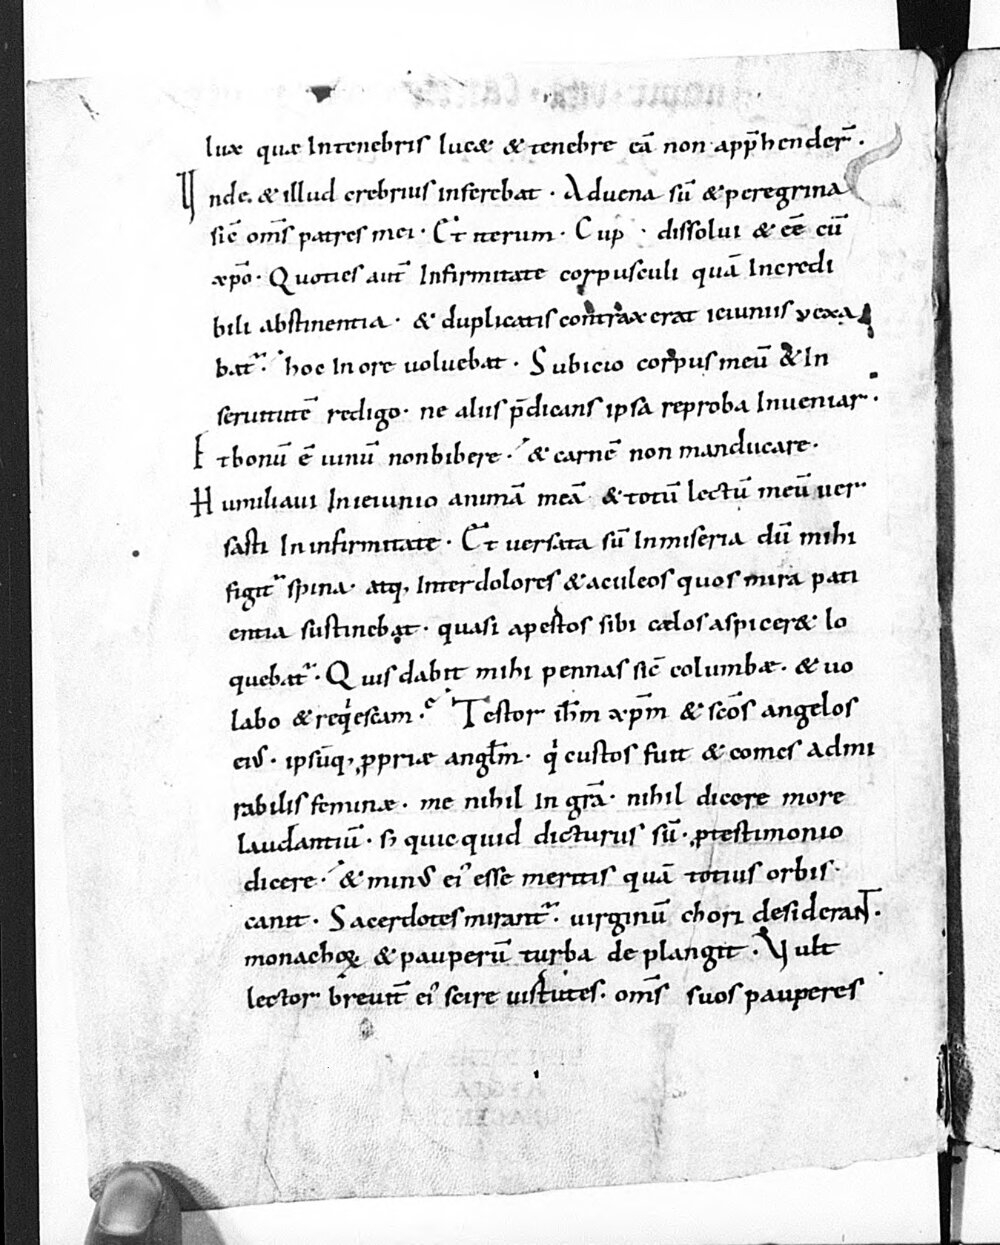 lux quæ Intenebris lucæ & tenebre eā non app̄hender̄.
Vnde. & illud crebrius inserebat. Aduena sū & peregrina
sic̄ om̄s patres mei. Et iterum. Cup̄. dissolui & eē cū
xp̄o. Quoties aut̄ Infirmitate corpusculi quā Incredi
bili abstinentia. & duplicatis contraxerat ieiuniis vexa
bat᷑. hoc In ore uoluebat. Subicio corpus meū & In
seruitutē redigo. ne aliis p̄dicans ipsa reproba Inueniar.
Et bonū ē uinū non bibere. & carnē non manducare.
Humiliaui In ieiunio animā meā & totū lectū meū uer
sasti In infirmitate. Et uersata sū In miseria dū mihi
figit᷑ spina. atq, Inter dolores & aculeos quos mira pati
entia sustinebat. quasi apertos sibi cælos aspiceræ lo
quebat᷑. Quis dabit mihi pennas sic̄ columbæ. & uo
labo & reqͥescam. Testor ih̄m xp̄m & sc̄os angelos
eiꝰ. ipsūq, ꝓpriæ angl̄m. qͥ custos fuit & comes admi
rabilis feminæ. me nihil In grā. nihil dicere more
laudantiū. sꝫ quicquid dicturus sū. ꝓ testimonio
dicere. & minꝰ ei᾽ esse meritis quā totius orbis.
canit. Sacerdotes mirant᷑. uirginū chori desiderant.
monachoꝝ & pauperū turba deplangit. Vult
lector breuit̄ ei᾽ scire uirtutes. om̄s suos pauperes